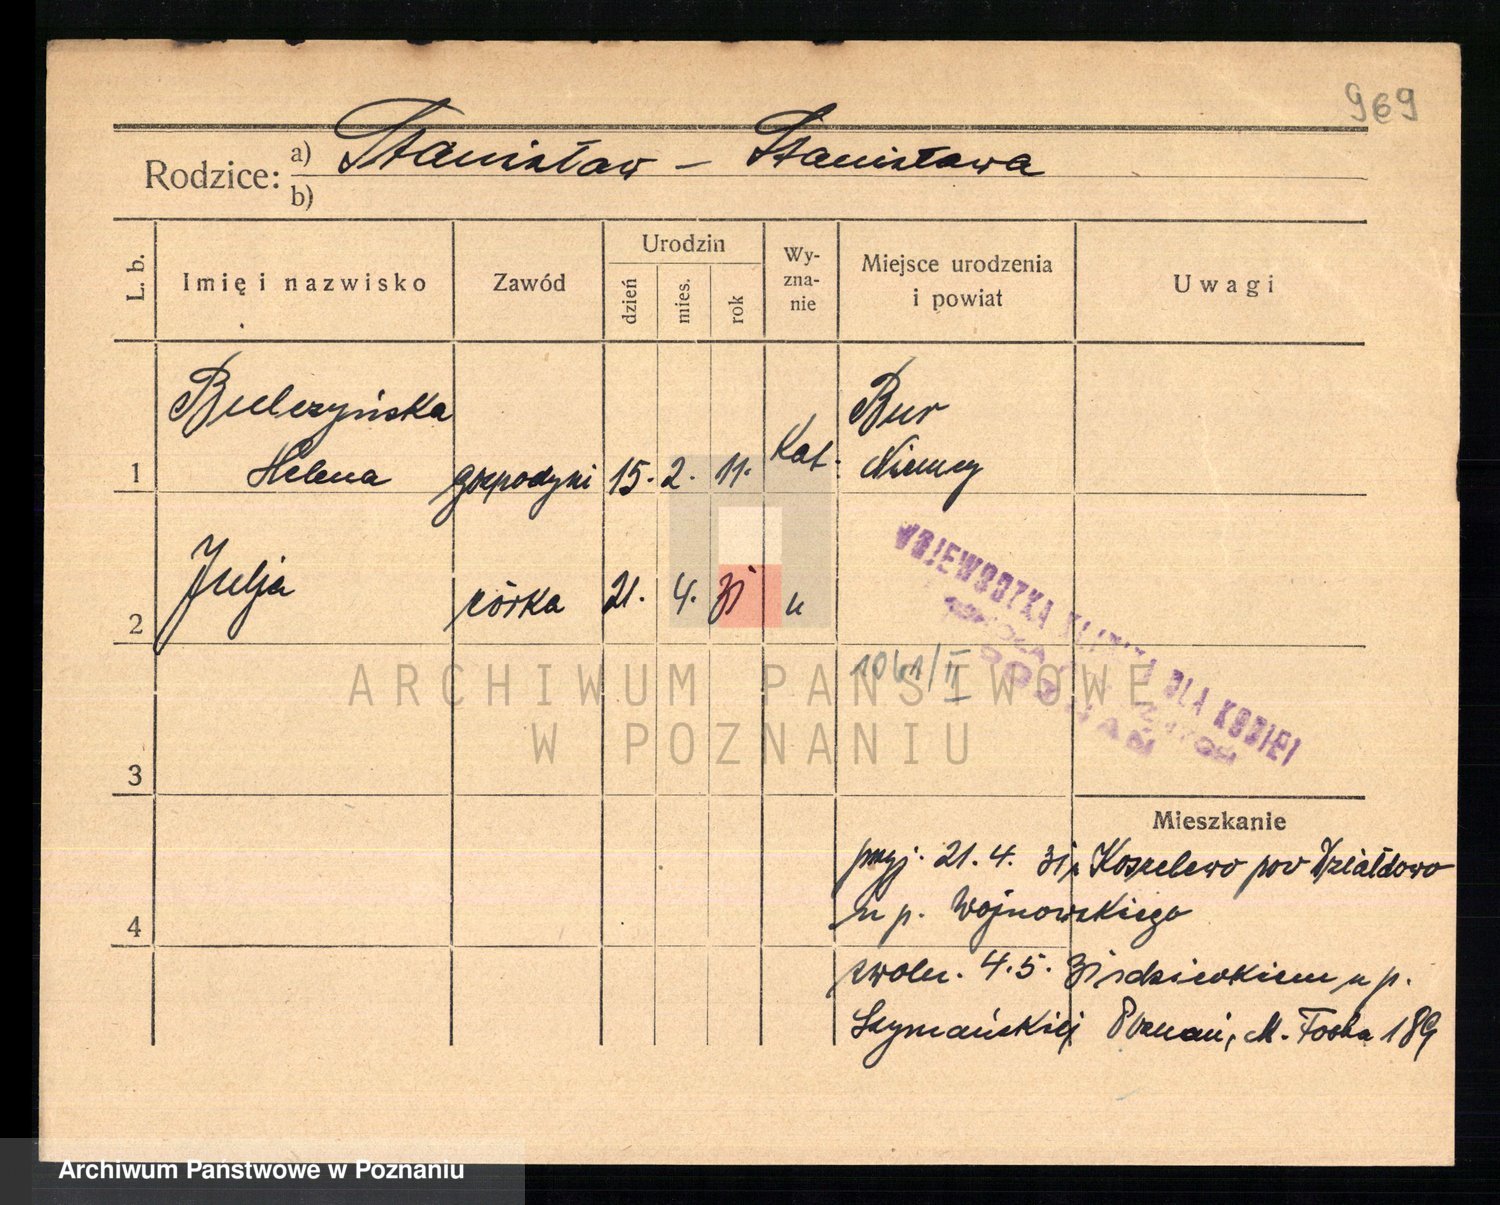 969
Rodzice: a) Stanisław – Stanisława
b)
L. b.
Imię i nazwisko
Zawód
Urodzin
dzień
mies.
rok
Wy-
zna-
nie
Miejsce urodzenia
i powiat
Uwagi
1
Helena gospodyni 15. 2. 11. Kat. Niemcy
2
Julja córka 21. 4. 31 u
WOJEWÓDZKA KLINIKA DLA KOBIET
POZNAŃ
1061/II
ARCHIWUM PAŃSTWOWE
W POZNANIU
3
Mieszkanie
przyj. 21. 4. 31 z Koszelewo pow Działdowo
u p. Wojnowskiego
4
zwoln. 4. 5. 31 z dzieckiem u p.
Szymańskiej Poznań, M. Focha 189
Archiwum Państwowe w Poznaniu